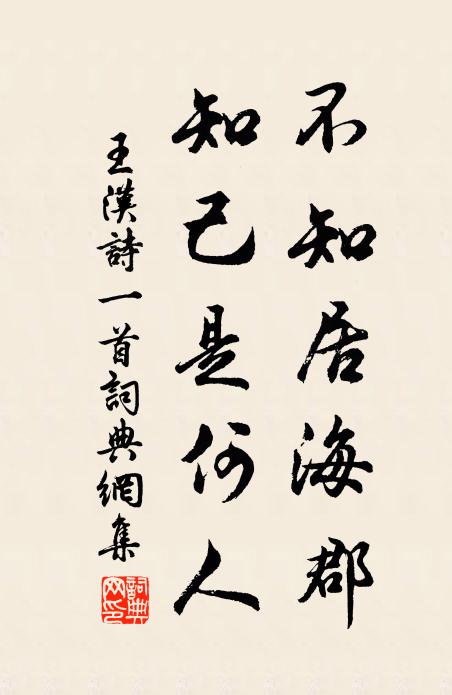 不知居海郡
知己是何人
王漢詩一首詞典網集
詞典網印